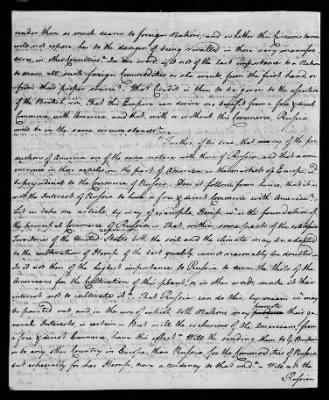 render them so much dearer to foreign Nations, and whether this Circumstance
will not expose her to the danger of being rivalled in these very manufac-
tures, in other Countries? In this word is it not of the last importance to a Nation
to receive all such foreign Commodities as she wants from the first hand or
from their proper source? What Credit is then to be given to the assertion
of the British, viz. That this Empire can derive no benefit from a free & direct
Commerce with America and that, with or without this Commerce, Russia
will be in the same circumstances.
"Further, if it is true, that many of the pro-
ductions of America are of the same nature with those of Russia, and that a con-
currence in these articles on the part of America in the markets of Europe, is
to prejudicial to the Commerce of Russia. Does it follow from hence, that it is
not the Interest of Russia to have a free & direct commerce with America?
Let us take one article by way of example, Hemp, wh. is the foundation of
the principal Commerce of Russia. That within some parts of the extensive
Territories of the United States, both the soil and the climate may be adapted
to the cultivation of Hemp of the best quality cannot reasonably be doubted.
Is it not then of the highest importance to Russia to turn the thoughts of the
Americans from the Cultivation of this plant, or in other words, make it their
interest not to cultivate it. That Russia can do this, by means wh. may
be pointed out, and in the use of which both Nations may promote their ge-
neral Interests, is certain. But will the exclusion of the Americans from
a free & direct Commerce, have this effect? Will the sending them to G. Britain
or to any other Country in Europe, than Russia for the Commodities of Russia
but especially for her Hemp, have a tendency to that end? Will not the
Russian